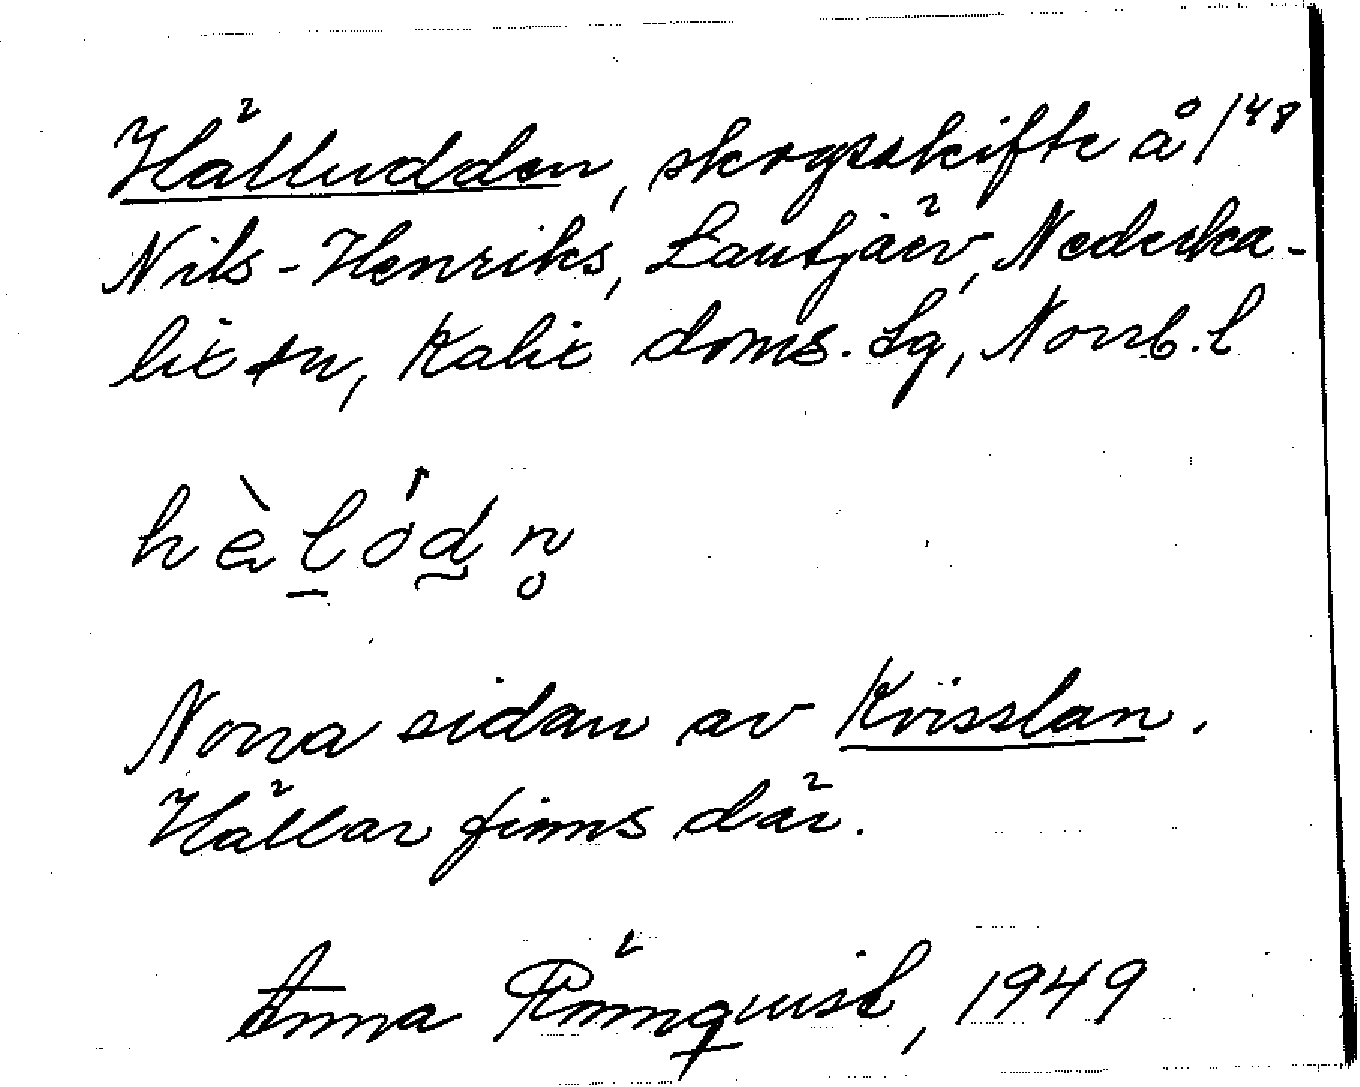 Hälludden, skogsskifte å 1⁴⁸
Nils-Henriks, Lantjärv, Nederka-
lix sn, Kalix doms. lg, Norrb. l
hèl̲ód̰n̥
Norra sidan av Kvisslan.
Hällar finns där.
Anna Rönnquist, 1949